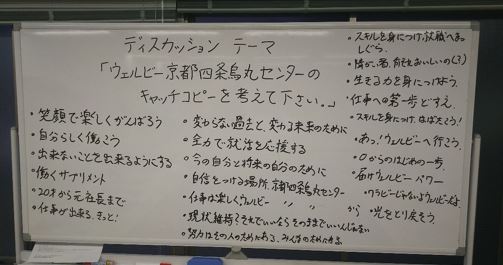 ディスカッション テーマ
「ウェルビー京都四条烏丸センターの
キャッチコピーを考えて下さい。」
・笑顔で楽しくがんばろう
・自分らしく働こう
・出来ないことを出来るようにする
・働くサプリメント
・20才から元社長まで
・仕事が出来る、きっと!
・変わらない過去と、変わる未来のために
・全力で就活を応援する
・今の自分と将来の自分のために
・自信をつける場所、京都四条烏丸センター
・仕事は楽しくウェルビー 〃 〃
・現状維持?それでいいならそのままでいいんじゃない
・努力はその人のためにある、みんなのためにある
・スキルを身につけ、就職へまっ
しぐら。
・生きる力を身につけよう。
・仕事への第一歩どすえ。
・スキルを身につけ、はばたこう!
・あっ!ウェルビーへ行こう。
・0からのはじめの一歩。
・届けウェルビーパワー
・ワラビーじゃないよウェルビーだよ
から 光をとり戻そう